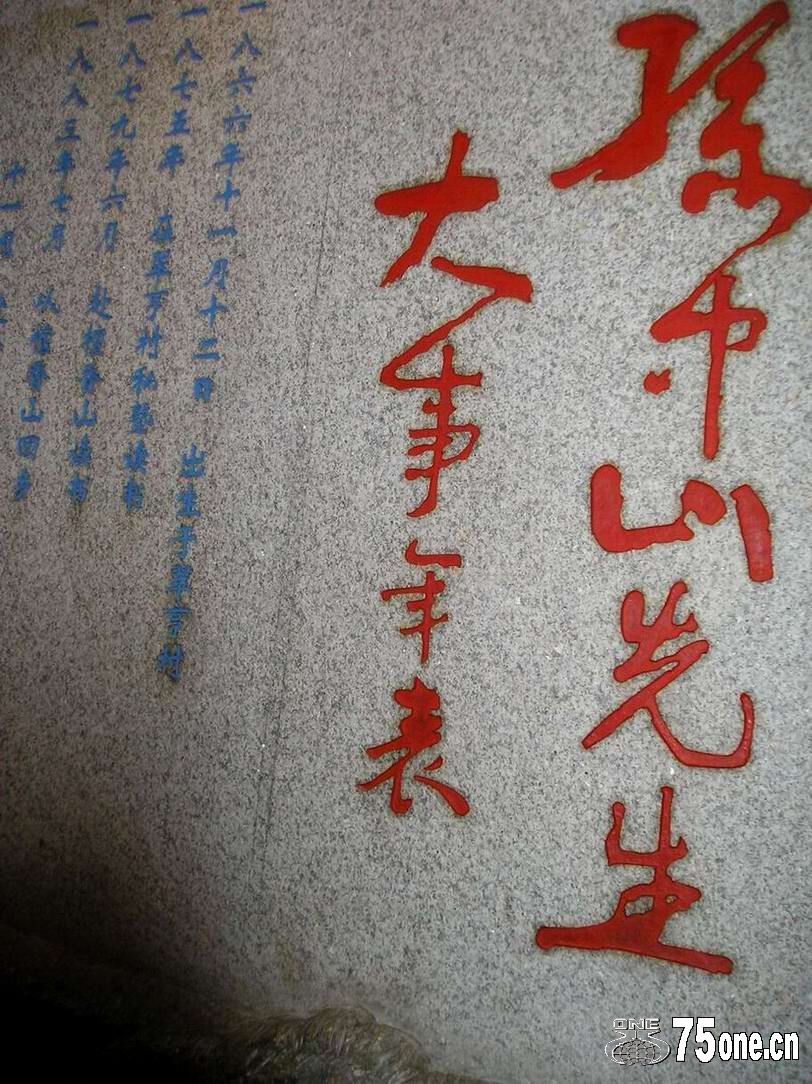 孫中山先生
大事年表
一八六六年十一月十二日 出生于翠亨村
一八七五年 在翠亨村私塾读书
一八七九年六月 赴檀香山读书
一八八三年七月 从檀香山回乡
十一月
ONE 75one.cn